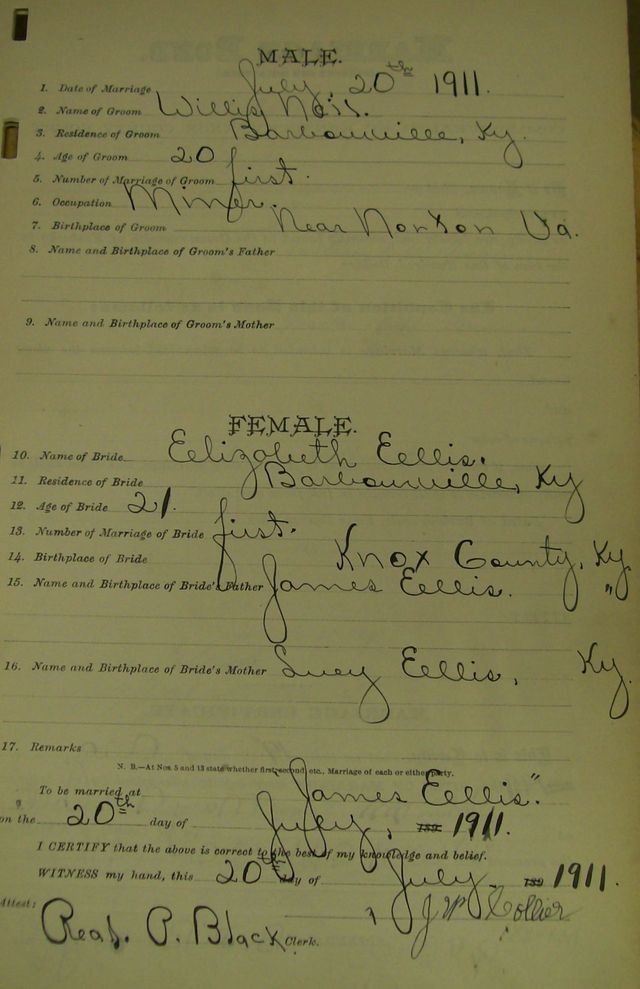 MALE.
1. Date of Marriage July, 20th 1911.
2. Name of Groom Willis Ness.
3. Residence of Groom Barbourville, Ky.
4. Age of Groom 20
5. Number of Marriage of Groom first.
6. Occupation Miner.
7. Birthplace of Groom Near Norton Va.
8. Name and Birthplace of Groom's Father
9. Name and Birthplace of Groom's Mother
FEMALE.
10. Name of Bride Eelizabeth Eellis.
11. Residence of Bride Barbourville, Ky
12. Age of Bride 21.
13. Number of Marriage of Bride first.
14. Birthplace of Bride Knox County, Ky.
15. Name and Birthplace of Bride's Father James Eellis. "
16. Name and Birthplace of Bride's Mother Lucy Eellis, Ky.
17. Remarks
N. B.—At Nos. 5 and 13 state whether first, second, etc., Marriage of each or either party.
To be married at James Eellis."
on the 20th day of July, 189 1911.
I CERTIFY that the above is correct to the best of my knowledge and belief.
WITNESS my hand, this 20th day of July 189 1911.
J W Collier
Attest:
Read. P. Black Clerk.